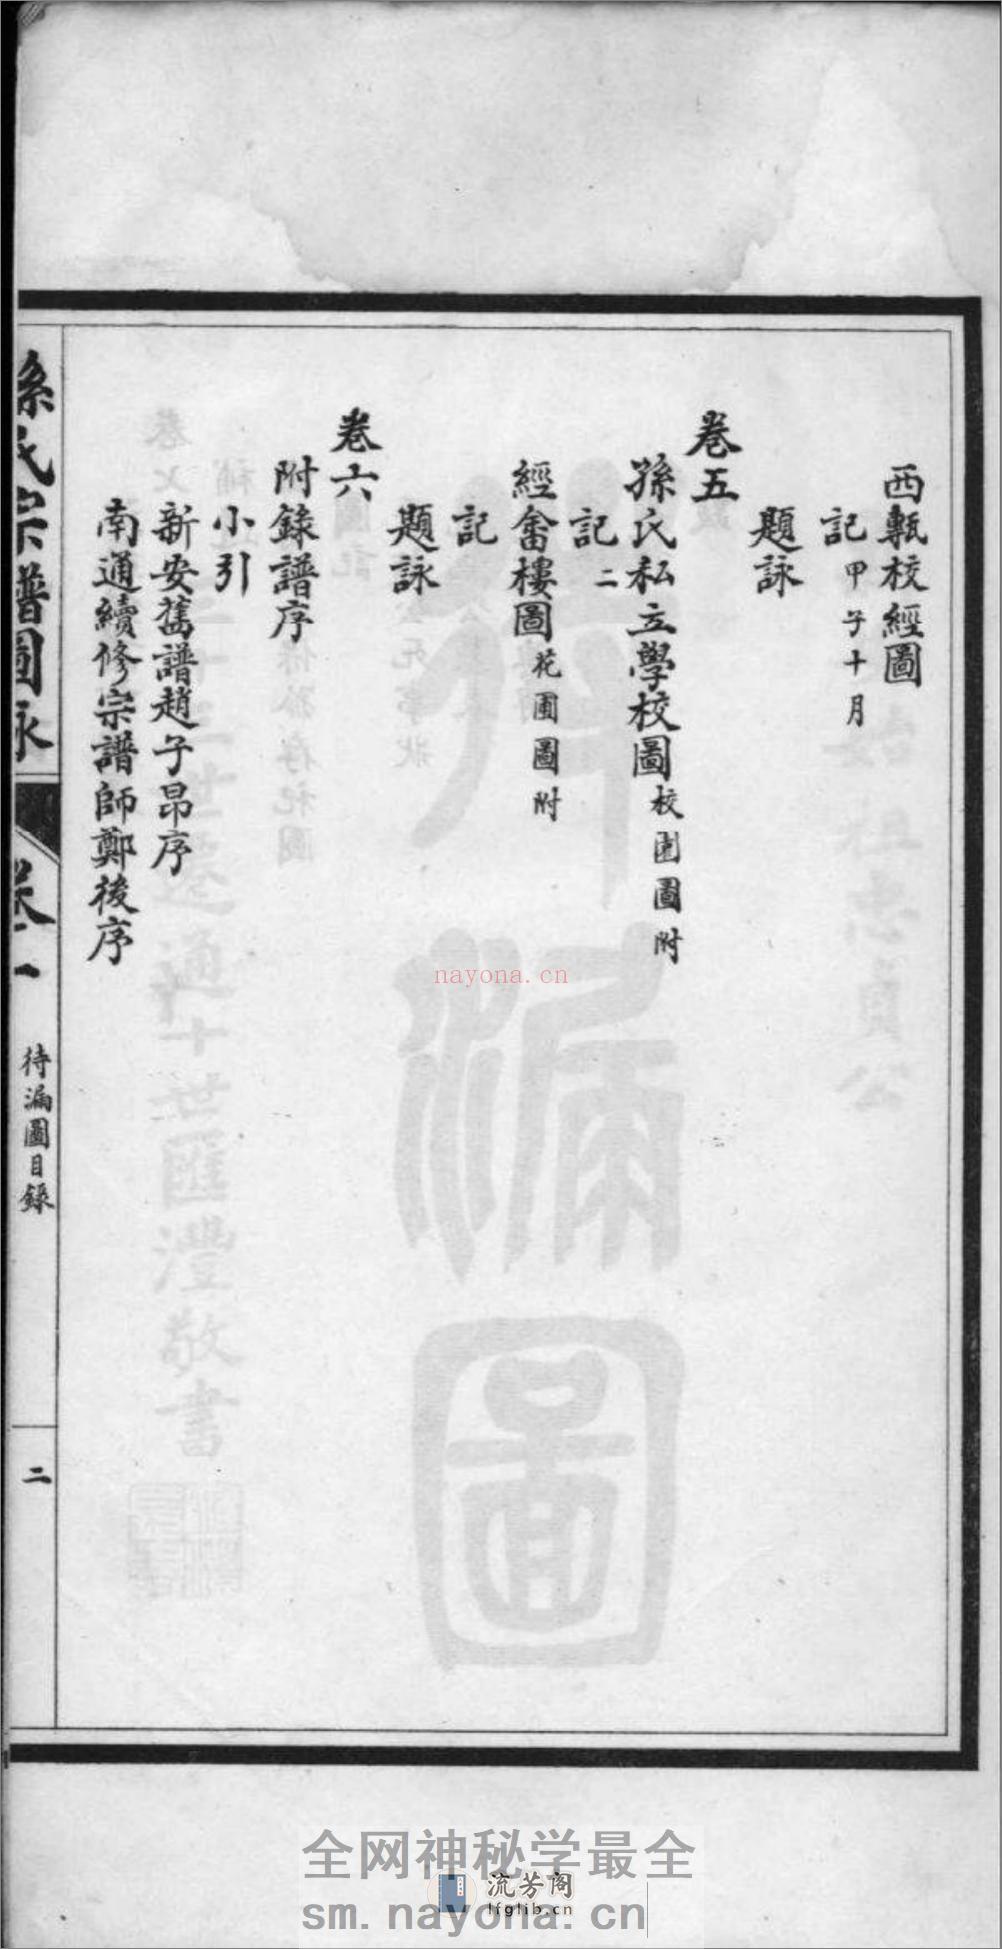 西甎校經圖
記 甲子十月
題詠
卷五
孫氏私立學校圖 校園圖附
記 二
經畬樓圖 花圃圖附
記
題詠
卷六
附錄譜序
小引
新安舊譜趙子昂序
南通續修宗譜師鄭後序
孫氏宗譜圖詠
卷一
待漏圖目錄
二
待漏圖
始祖忠貞公
三十三世遷通十世匯灃敬書
nayona.cn
全网神秘学最全
流芳阁
lfglib.cn
sm.nayona.cn